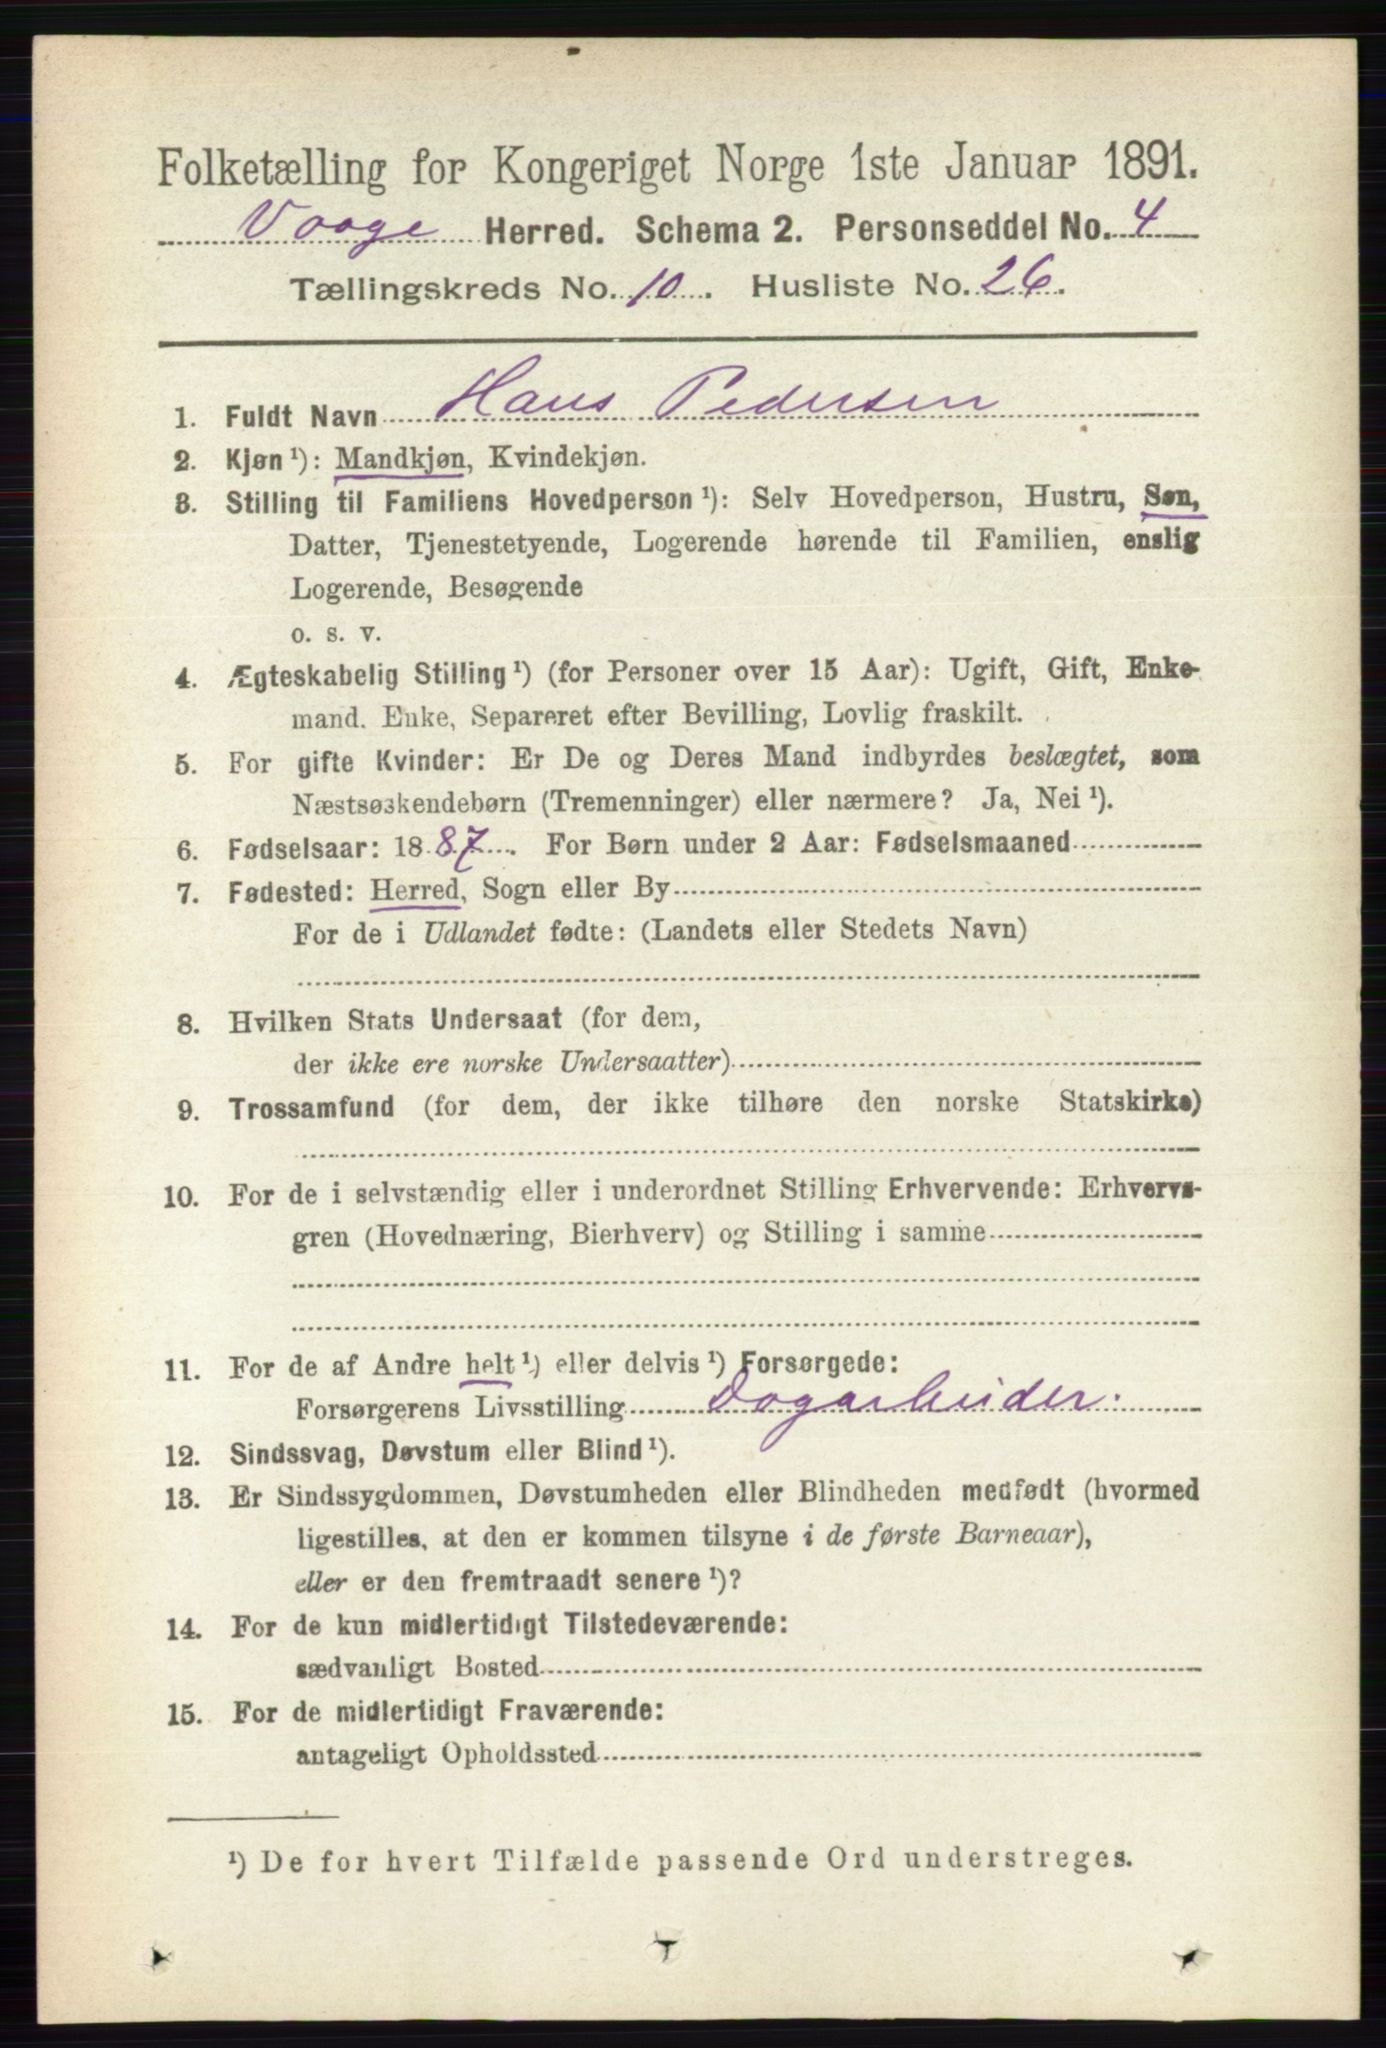 Folketælling for Kongeriget Norge 1ste Januar 1891.
Vaage Herred. Schema 2. Personseddel No. 4
Tællingskreds No. 10. Husliste No. 26.
1. Fuldt Navn Hans Pedersen
2. Kjøn ¹): Mandkjøn, Kvindekjøn.
3. Stilling til Familiens Hovedperson ¹): Selv Hovedperson, Hustru, Søn,
Datter, Tjenestetyende, Logerende hørende til Familien, enslig
Logerende, Besøgende
o. s. v.
4. Ægteskabelig Stilling ¹) (for Personer over 15 Aar): Ugift, Gift, Enke-
mand. Enke, Separeret efter Bevilling, Lovlig fraskilt.
5. For gifte Kvinder: Er De og Deres Mand indbyrdes beslægtet, som
Næstsøskendebørn (Tremenninger) eller nærmere? Ja, Nei ¹).
6. Fødselsaar: 1887. For Børn under 2 Aar: Fødselsmaaned
7. Fødested: Herred, Sogn eller By
For de i Udlandet fødte: (Landets eller Stedets Navn)
8. Hvilken Stats Undersaat (for dem,
der ikke ere norske Undersaatter)
9. Trossamfund (for dem, der ikke tilhøre den norske Statskirke)
10. For de i selvstændig eller i underordnet Stilling Erhvervende: Erhvervs-
gren (Hovednæring, Bierhverv) og Stilling i samme
11. For de af Andre helt ¹) eller delvis ¹) Forsørgede:
Forsørgerens Livsstilling Dagarbeider.
12. Sindssvag, Døvstum eller Blind ¹).
13. Er Sindssygdommen, Døvstumheden eller Blindheden medfødt (hvormed
ligestilles, at den er kommen tilsyne i de første Barneaar),
eller er den fremtraadt senere ¹)?
14. For de kun midlertidigt Tilstedeværende:
sædvanligt Bosted
15. For de midlertidigt Fraværende:
antageligt Opholdssted
¹) De for hvert Tilfælde passende Ord understreges.